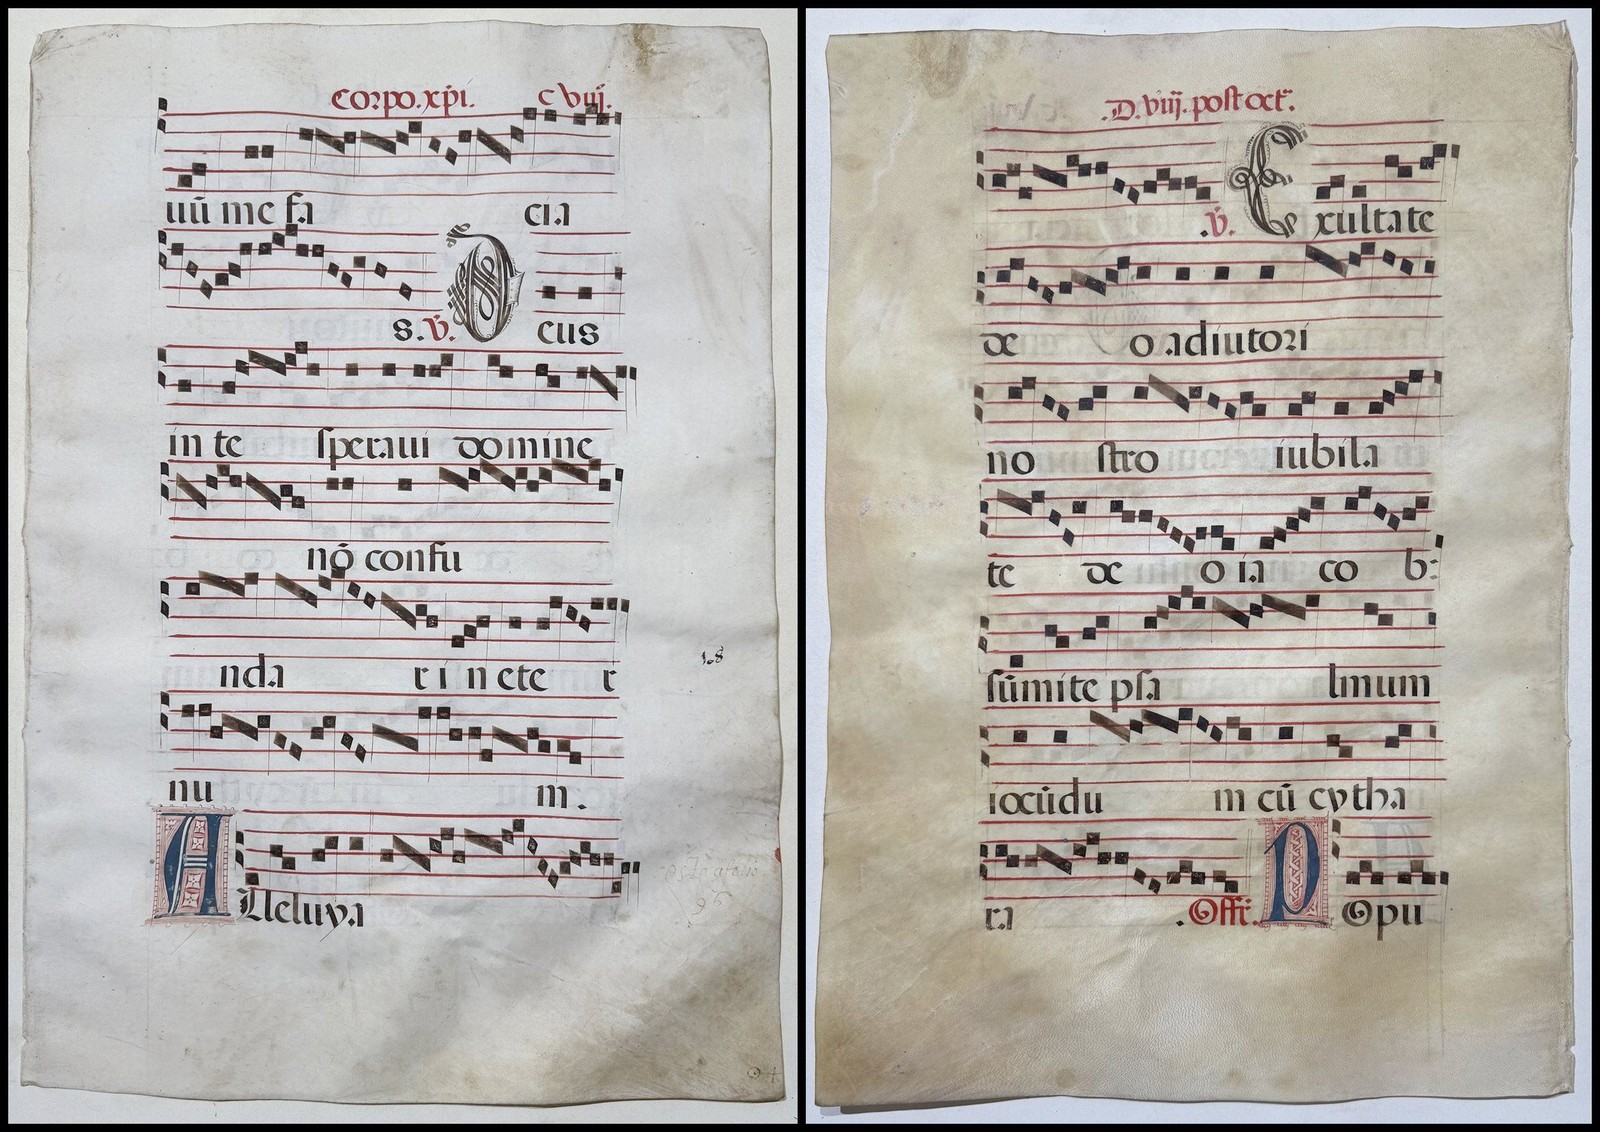 Corpo. xp̄i. C viij.
uū me fa cia
s. ℣. D eus
in te speraui domine
nō confu
nda r i n ete r
nu m.
A lleluya
18
96
.D. viij. post oct̄.
.℣. E xultate
de o adiutori
no stro iubila
te de o ia co b:
sūmite psa lmum
iocūdu m cū cytha
ra .Offr̄. P Opu